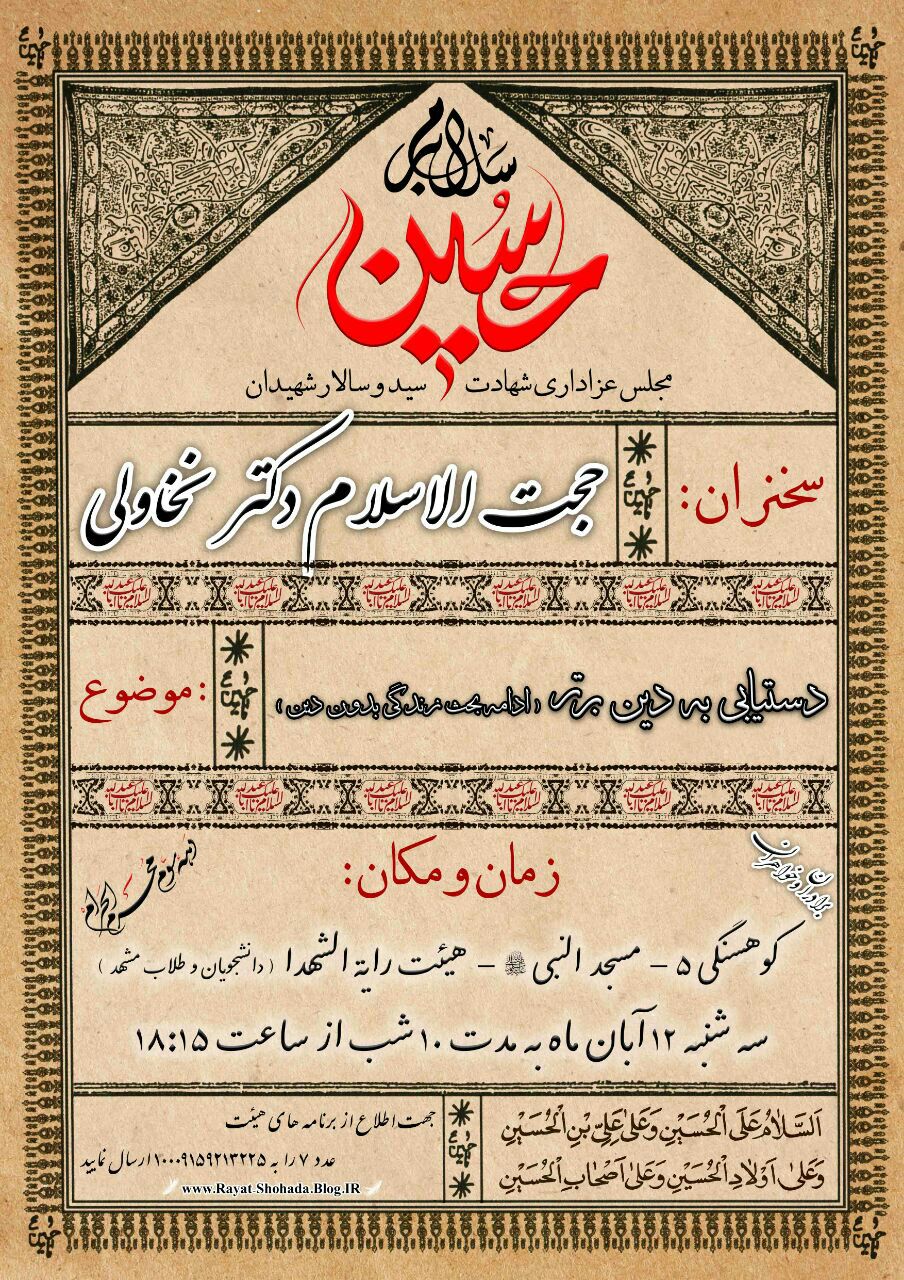 سلام بر
حسین
مجلس عزاداری شهادت سید و سالار شهیدان
سخنران:
حجت الاسلام دکتر نخاولی
السلام علیک یا ابا عبدالله
موضوع:
دستیابی به دین برتر (ادامه بحث زندگی بدون دین)
السلام علیک یا ابا عبدالله
برادران و خواهران
زمان و مکان:
دهه سوم محرم الحرام
کوهسنگی ۵ - مسجد النبی ﷺ - هیئت رایة الشهدا (دانشجویان و طلاب مشهد)
سه شنبه ۱۲ آبان ماه به مدت ۱۰ شب از ساعت ۱۸:۱۵
اَلسَّلامُ عَلَی الْحُسَیْنِ وَعَلیٰ عَلِیِّ بْنِ الْحُسَیْنِ
وَعَلیٰ اَوْلادِ الْحُسَیْنِ وَعَلیٰ اَصْحابِ الْحُسَیْنِ
جهت اطلاع از برنامه های هیئت
عدد ۷ را به ۱۰۰۰۹۱۵۹۲۱۳۲۲۵ ارسال نمایید
www.Rayat-Shohada.Blog.IR